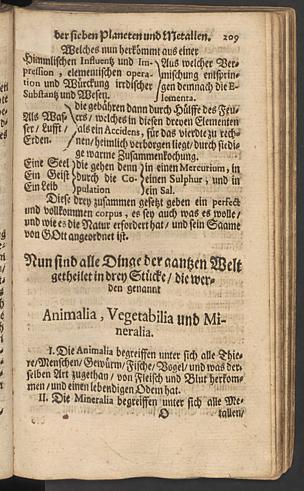 der sieben Planeten und Metallen. 209
Welches nun herkombt aus einer
Himmlischen Influentz und Im- Aus welcher Ver-
pression, elementischen opera- mischung entsprin-
tion und Würckung irrdischer gen demnach die E-
Substantz und Wesen. lementa.
die gebähren dann durch Hülffe des Feu-
Als Was- ers/ welches in diesen dreyen Elementen
ser/ Lufft/ als ein Accidens, für das vierdte zu rech-
Erden. nen/ heimlich verborgen liegt/ durch siedi-
ge warme Zusammenkochung.
Eine Seel die gehen denn in einen Mercurium, in
Ein Geist durch die Co- einen Sulphur, und in
Ein Leib pulation ein Sal.
Diese drey zusammen gesetzt geben ein perfect
und vollkommen corpus, es sey auch was es wolle/
und wie es die Natur erfordert hat/ und sein Saame
von GOtt angeordnet ist.
Nun sind alle Dinge der gantzen Welt
getheilet in drey Stücke/ die wer-
den genannt
Animalia, Vegetabilia und Mi-
neralia.
I. Die Animalia begreiffen unter sich alle Thie-
re/ Menschen/ Gewürm/ Fische/ Vogel/ und was der-
selben Art zugethan/ von Fleisch und Blut herkom-
men/ und einen lebendigen Odem hat.
II. Die Mineralia begreiffen unter sich alle Me-
O tallen/